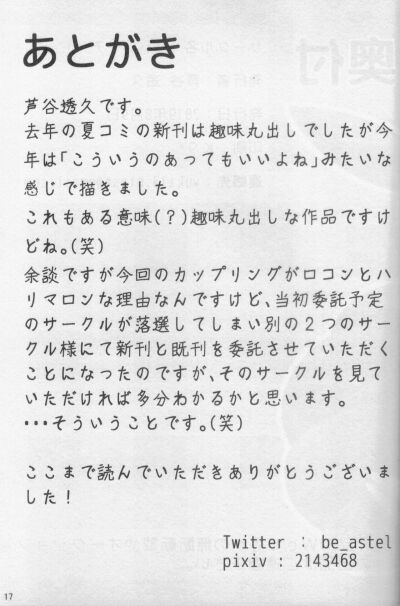 あとがき
芦谷透久です。
去年の夏コミの新刊は趣味丸出しでしたが今
年は「こういうのあってもいいよね」みたいな
感じで描きました。
これもある意味(?)趣味丸出しな作品ですけ
どね。(笑)
余談ですが今回のカップリングがロコンとハ
リマロンな理由なんですけど、当初委託予定
のサークルが落選してしまい別の2つのサー
クル様にて新刊と既刊を委託させていただく
ことになったのですが、そのサークルを見て
いただければ多分わかるかと思います。
・・・そういうことです。(笑)
ここまで読んでいただきありがとうございま
した!
Twitter : be_astel
pixiv : 2143468
17